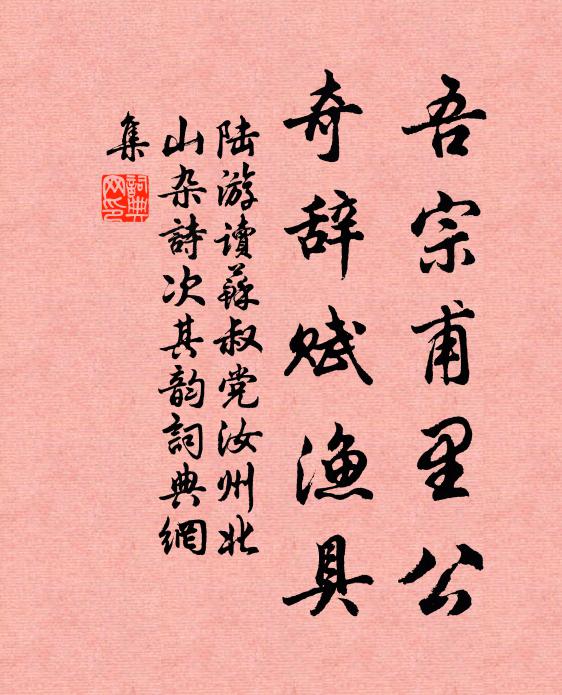 吾宗甫里公
奇辞赋渔具
陆游读蘇叔党汝州北
山杂詩次其韵詞典網
集
詞典
网印